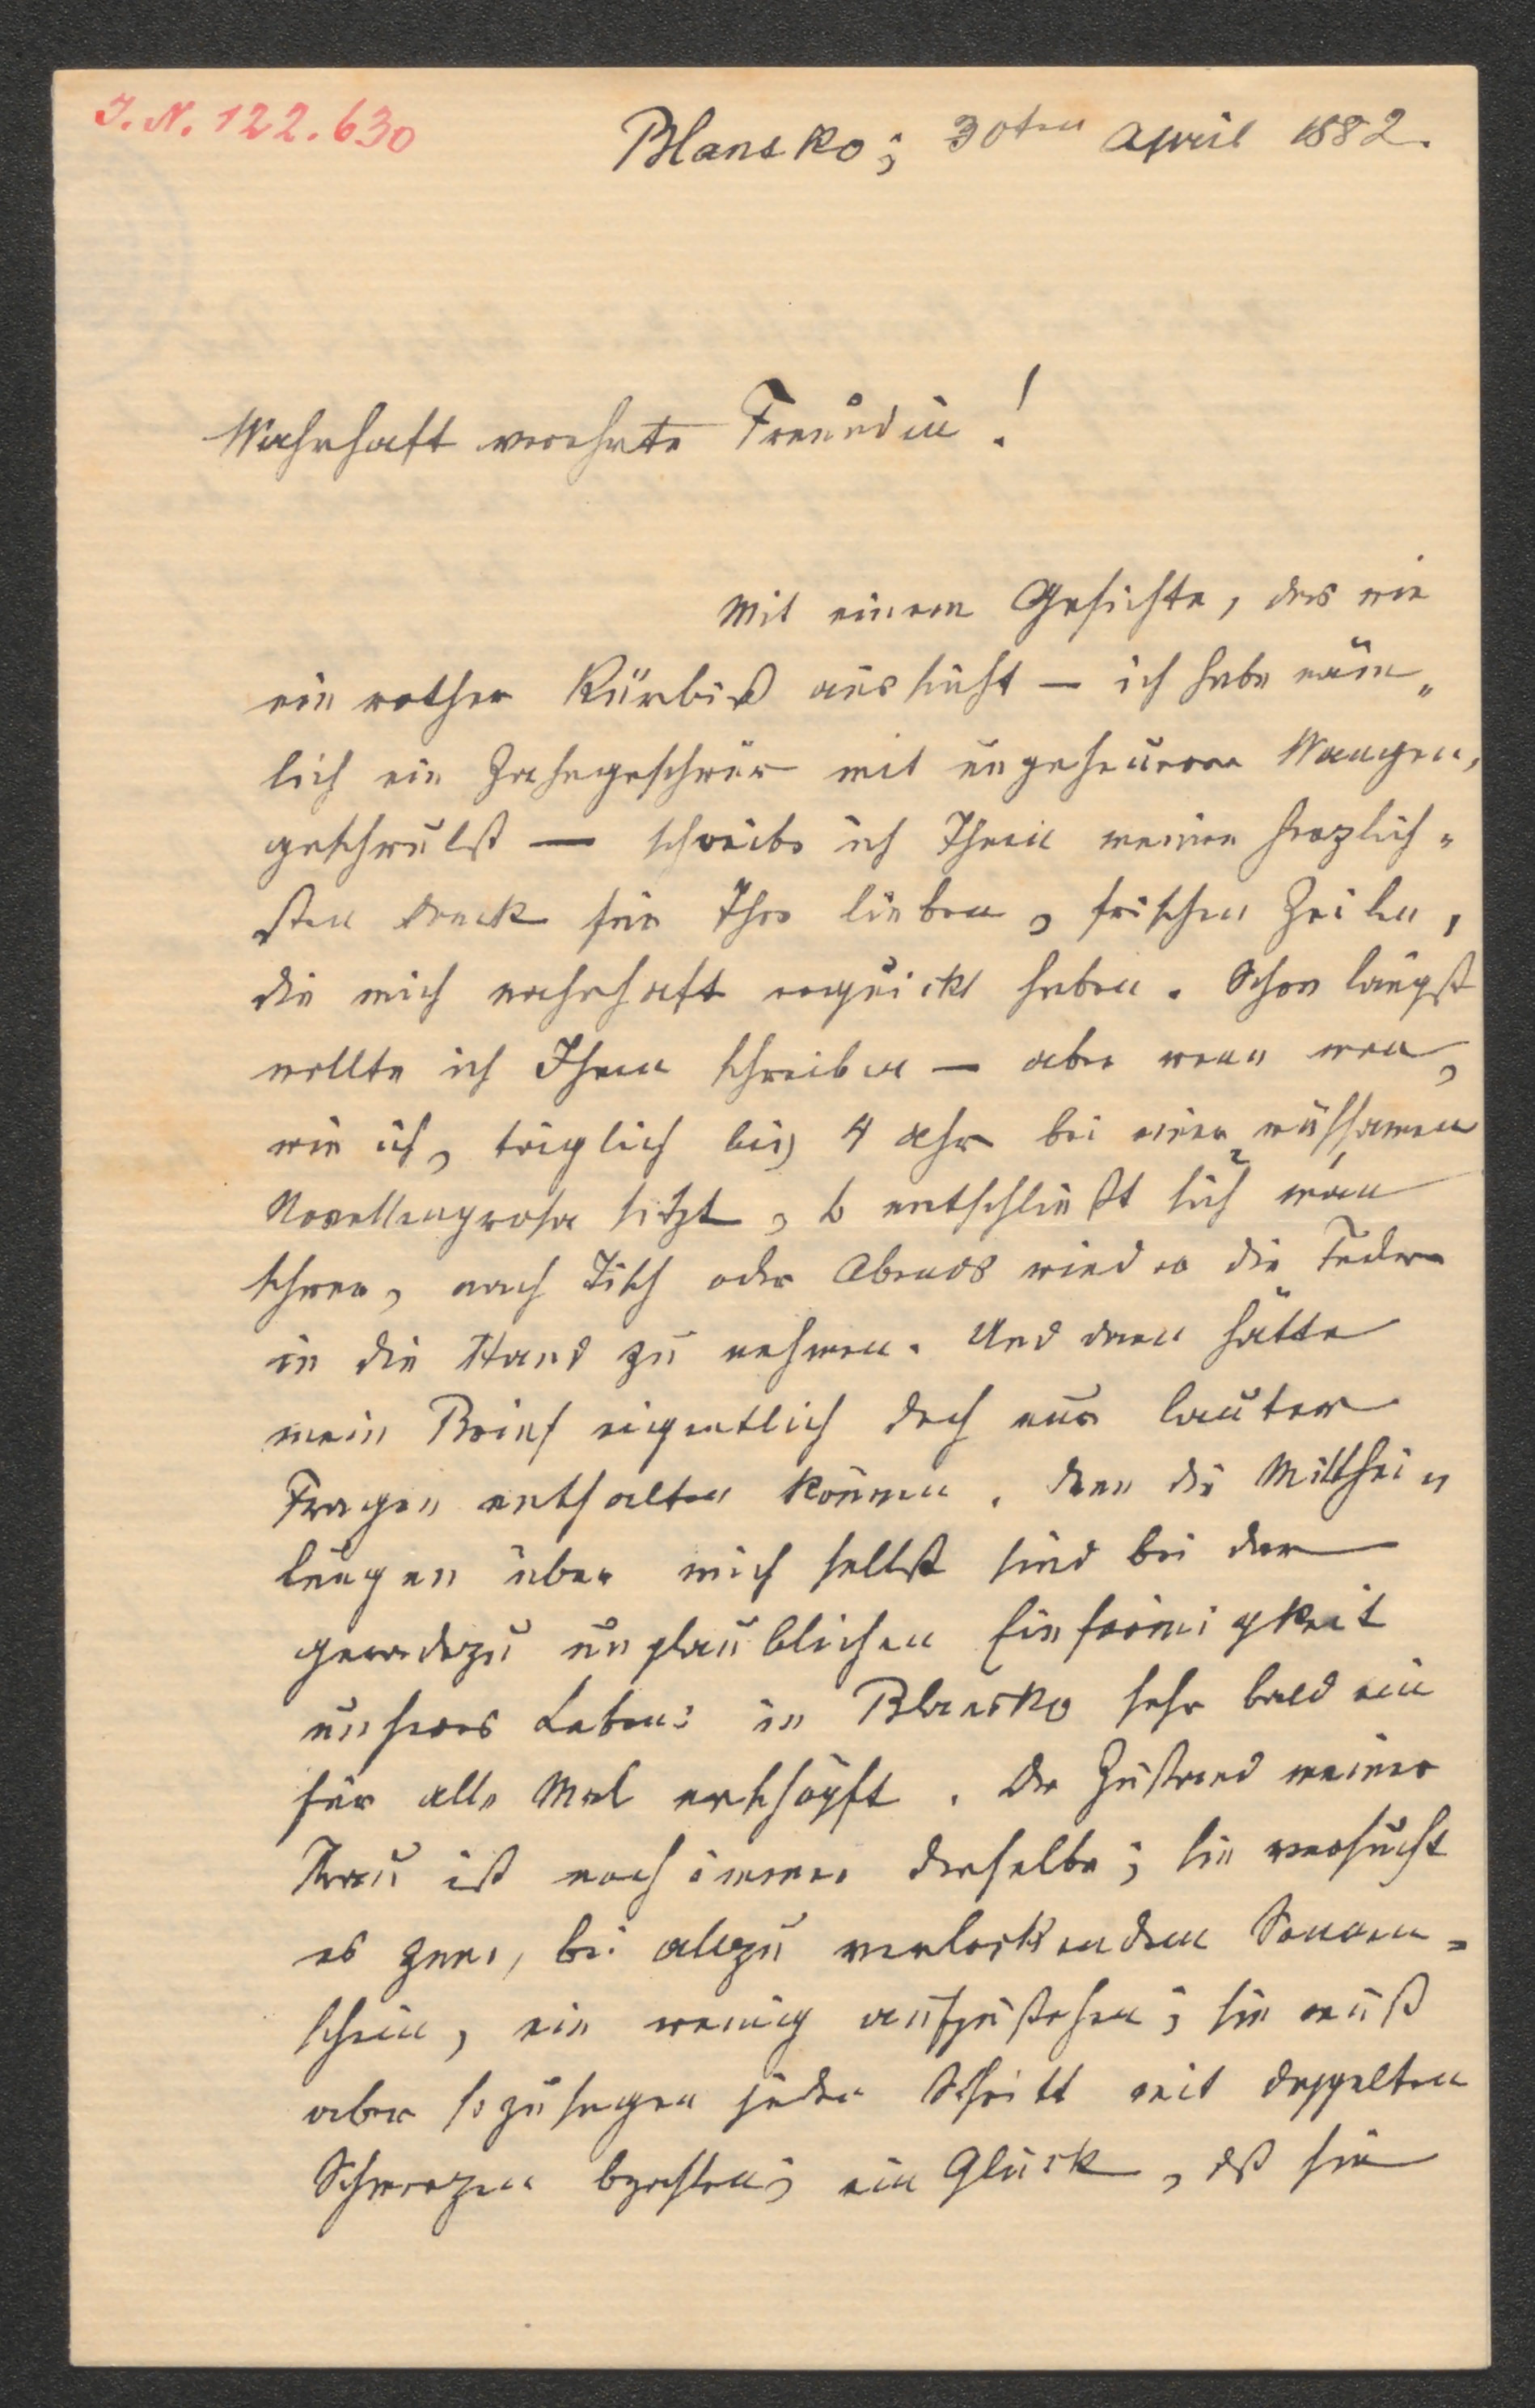 J. N. 122.630
Blansko; 30ten April 1882.
Wahrhaft verehrte Freundin!
Mit einem Gesichte, das wie
ein rother Kürbiß aussieht — ich habe näm„
lich ein Zahngeschwür mit ungeheurer Wangen„
geschwulst — schreibe ich Ihnen meinen herzlich„
sten Dank für Ihre lieben, frischen Zeilen,
die mich wahrhaft erquickt haben. Schon längst
wollte ich Ihnen schreiben — aber wenn man,
wie ich, täglich bis 4 Uhr bei einer mühsamen
Novellenprosa sitzt, so entschließt sich man
schwer, nach Tisch oder Abends wieder die Feder
in die Hand zu nehmen. Und dann hätte
mein Brief eigentlich doch nur lauter
Fragen enthalten können, denn die Mitthei„
lungen über mich selbst sind bei der
geradezu unglaublichen Einförmigkeit
unseres Lebens in Blansko sehr bald ein
für alle Mal erschöpft. Der Zustand meiner
Frau ist noch immer derselbe; sie versucht
es zwar, bei allzu verlockendem Sonnen=
schein, ein wenig aufzustehen; sie muß
aber sozusagen jeden Schritt mit doppelten
Schmerzen bezahlen; ein Glück, daß sie